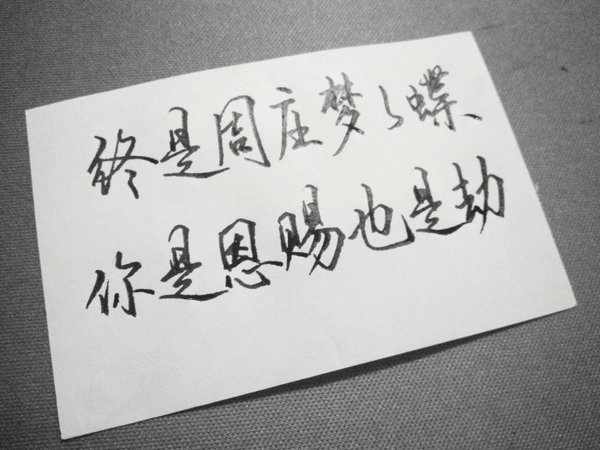 终是周庄梦了蝶
你是恩赐也是劫